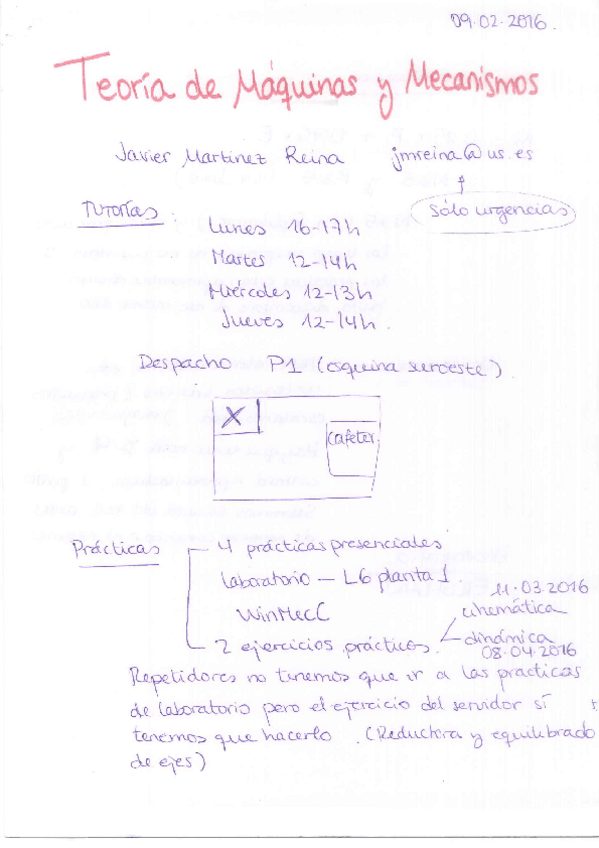 09.02.2016.
Teoría de Máquinas y Mecanismos
Javier Martínez Reina jmreina@us.es
Tutorías: sólo urgencias
Lunes 16-17h
Martes 12-14h
Miércoles 12-13h
Jueves 12-14h.
Despacho P1 (esquina suroeste).
X
cafeter.
Prácticas 4 prácticas presenciales
laboratorio — L6 planta 1.
WinMecC
11.03.2016
cinemática
2 ejercicios prácticos. dinámica
08.04.2016
Repetidores no tenemos que ir a las practicas
de laboratorio pero el ejercicio del servidor sí
tenemos que hacerlo. (Reductora y equilibrado
de ejes)